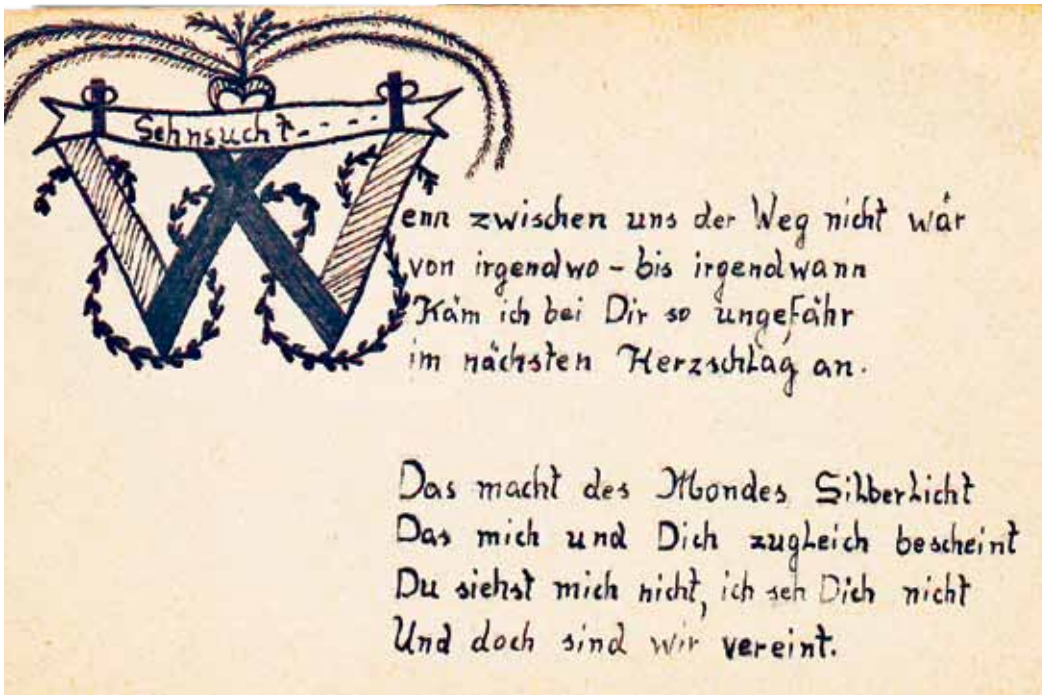 Sehnsucht - - - - -
Wenn zwischen uns der Weg nicht wär
von irgendwo - bis irgendwann
Käm ich bei Dir so ungefähr
im nächsten Herzschlag an.
Das macht des Mondes Silberlicht
Das mich und Dich zugleich bescheint
Du siehst mich nicht, ich seh Dich nicht
Und doch sind wir vereint.